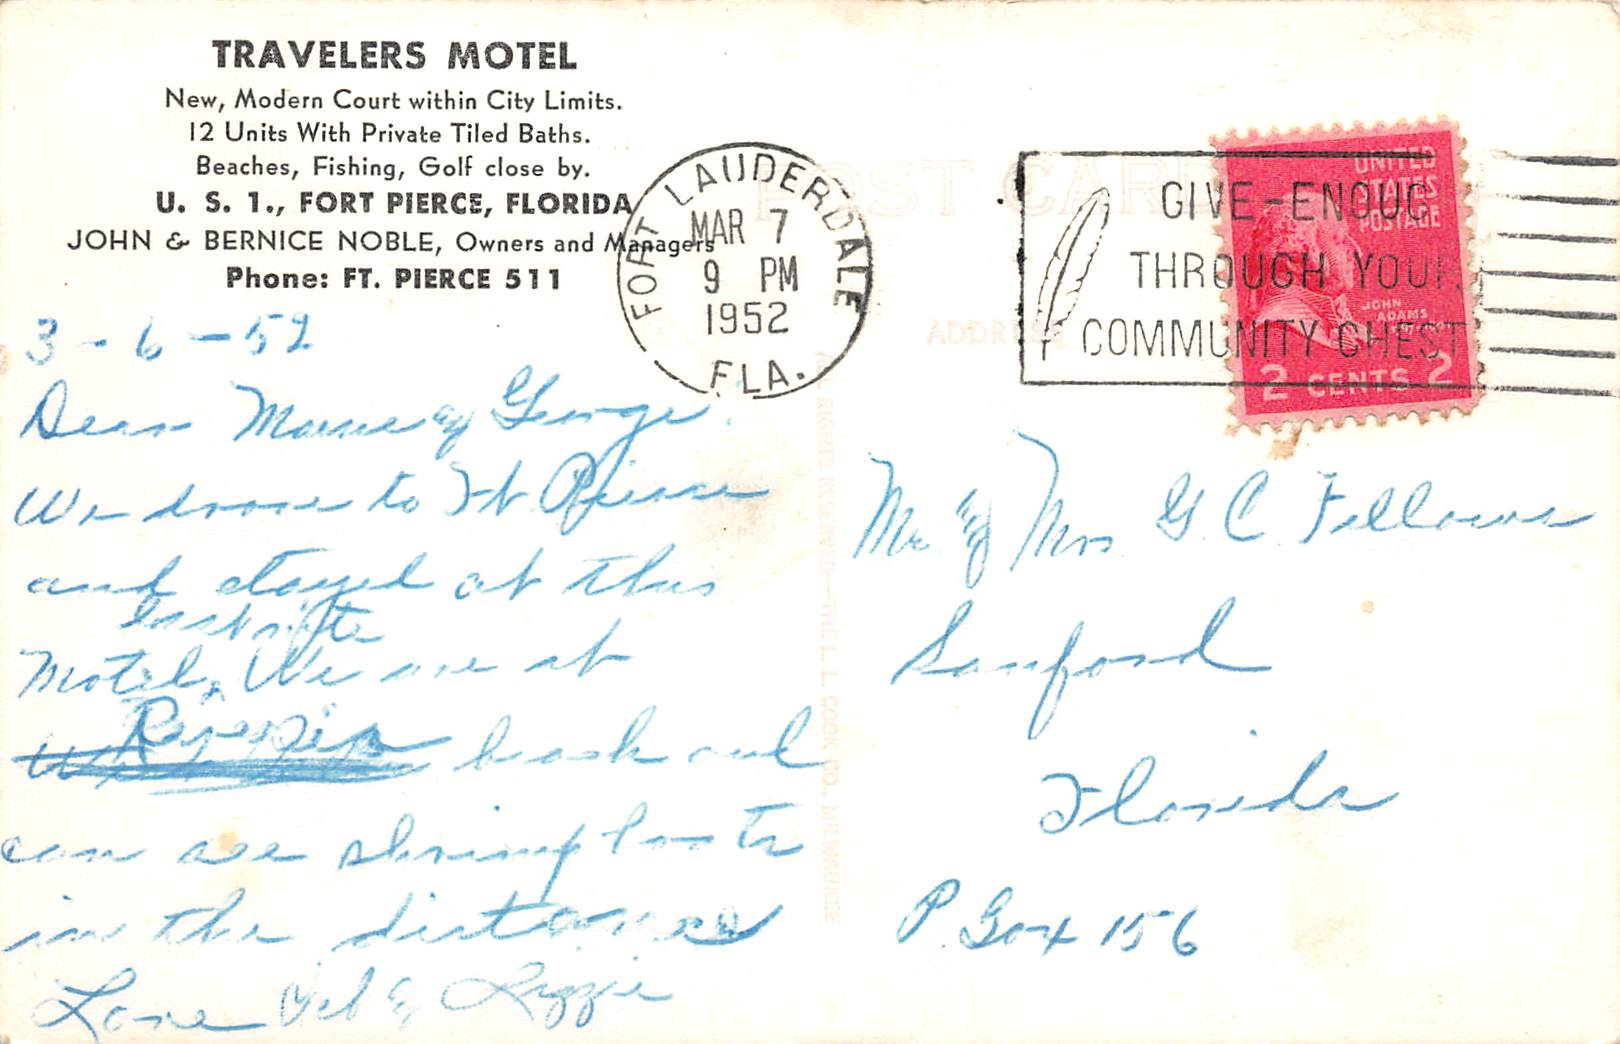 TRAVELERS MOTEL
New, Modern Court within City Limits.
12 Units With Private Tiled Baths.
Beaches, Fishing, Golf close by.
U. S. 1., FORT PIERCE, FLORIDA
JOHN & BERNICE NOBLE, Owners and Managers
Phone: FT. PIERCE 511
3-6-52
Dear & George
We drove to Ft Pierce
and stayed at this
last nite
Motel. We are at
beach and
can see shrimp boats
in the distance
Love & Lizzie
FORT LAUDERDALE
MAR 7
9 PM
1952
FLA.
POST CARD
ADDRESS
GIVE-ENOUG
THROUGH YOUR
COMMUNITY CHEST
UNITED
STATES
POSTAGE
JOHN
ADAMS
2 CENTS 2
Mr & Mrs G C Fellows
Sanford
Florida
P. Box 156
ALL RIGHTS RESERVED—THE L. L. COOK CO., MILWAUKEE